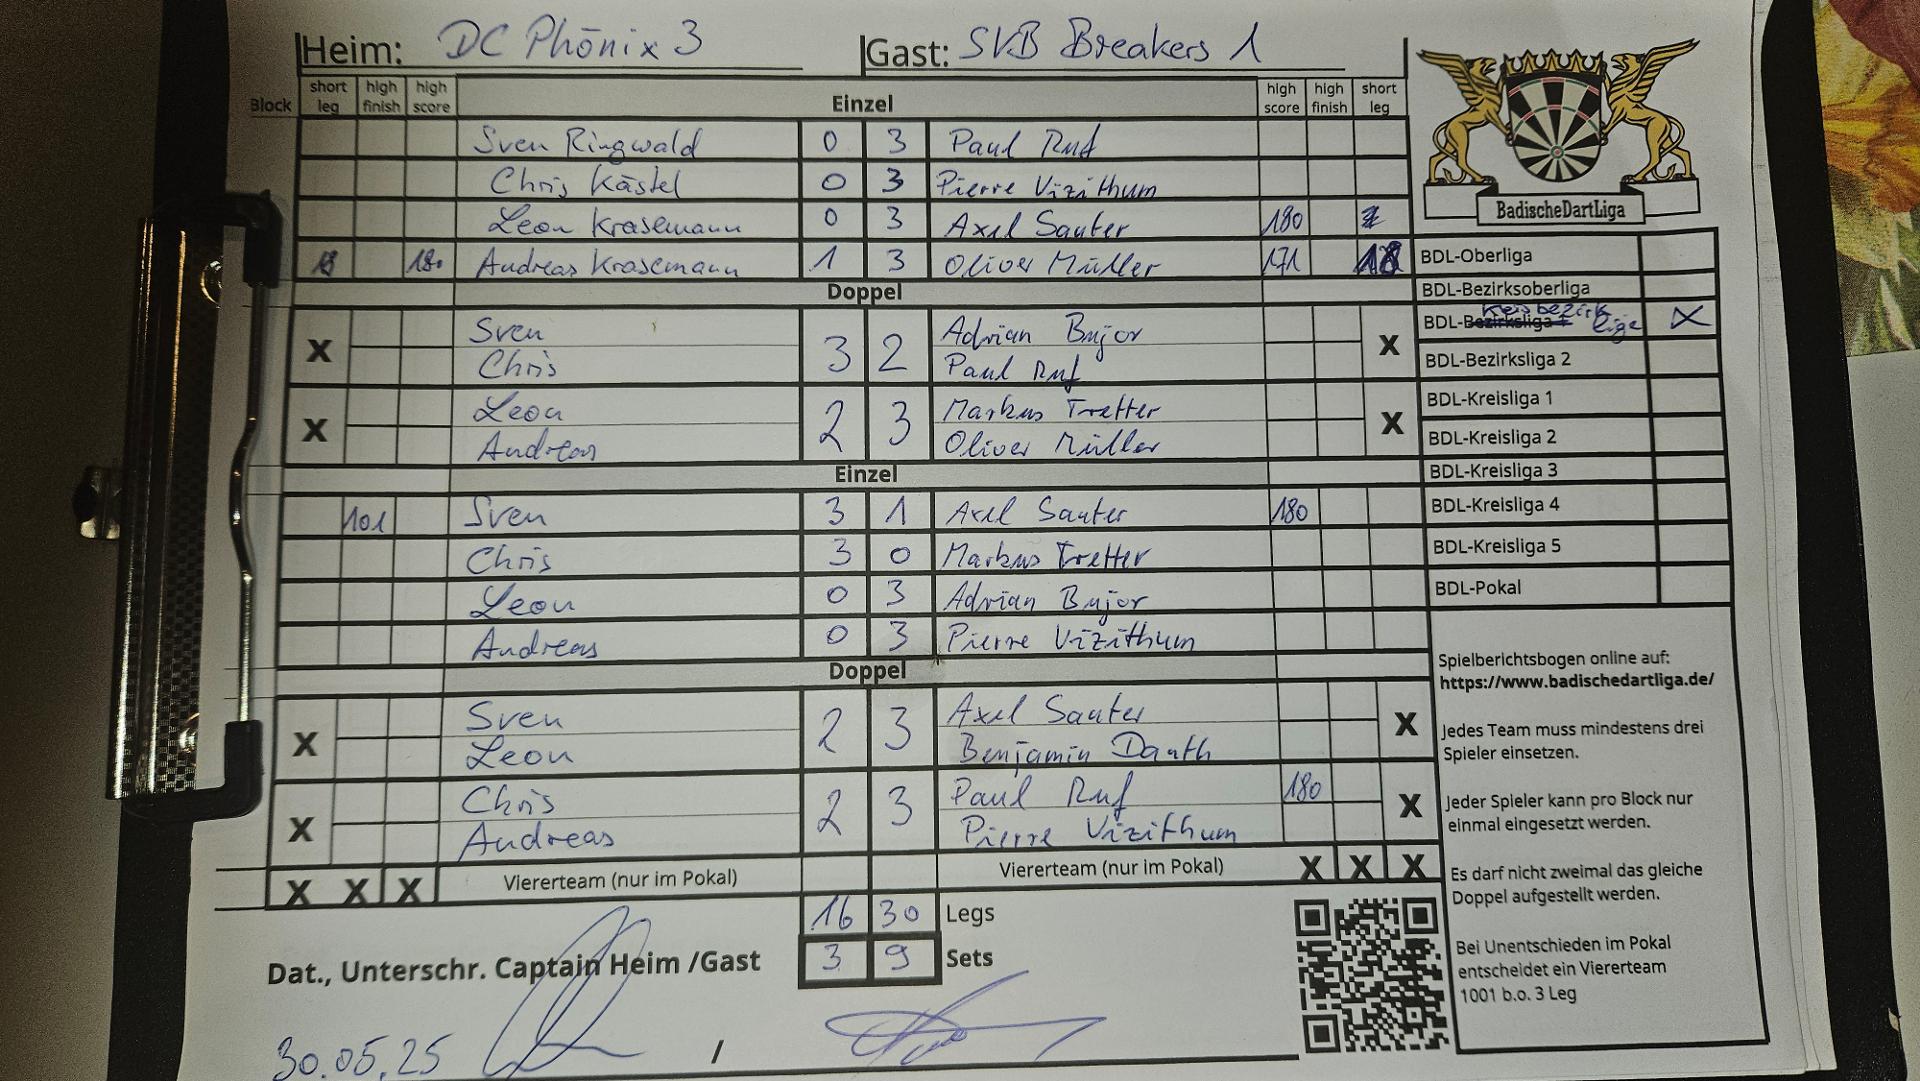 Heim: DC Phönix 3 Gast: SVB Breakers 1
Block short leg high finish high score Einzel high score high finish short leg
Sven Ringwald 0 3 Paul Ruf
Chris Kästel 0 3 Pierre Vizithum
Leon Krasemann 0 3 Axel Sauter 180
180 Andreas Krasemann 1 3 Oliver Müller 171 18
Doppel
X Sven 3 2 Adrian Bujor X
Chris Paul Ruf
X Leon 2 3 Markus Tretter X
Andreas Oliver Müller
Einzel
101 Sven 3 1 Axel Sauter 180
Chris 3 0 Markus Tretter
Leon 0 3 Adrian Bujor
Andreas 0 3 Pierre Vizithum
Doppel
X Sven 2 3 Axel Sauter X
Leon Benjamin Danth
X Chris 2 3 Paul Ruf 180 X
Andreas Pierre Vizithum
X X X Viererteam (nur im Pokal) Viererteam (nur im Pokal) X X X
16 30 Legs
Dat., Unterschr. Captain Heim /Gast 3 9 Sets
30.05.25 /
BadischeDartLiga
BDL-Oberliga
BDL-Bezirksoberliga
BDL-Bezirksliga 1 Kreisbezirk liga X
BDL-Bezirksliga 2
BDL-Kreisliga 1
BDL-Kreisliga 2
BDL-Kreisliga 3
BDL-Kreisliga 4
BDL-Kreisliga 5
BDL-Pokal
Spielberichtsbogen online auf:
https://www.badischedartliga.de/
Jedes Team muss mindestens drei
Spieler einsetzen.
Jeder Spieler kann pro Block nur
einmal eingesetzt werden.
Es darf nicht zweimal das gleiche
Doppel aufgestellt werden.
Bei Unentschieden im Pokal
entscheidet ein Viererteam
1001 b.o. 3 Leg